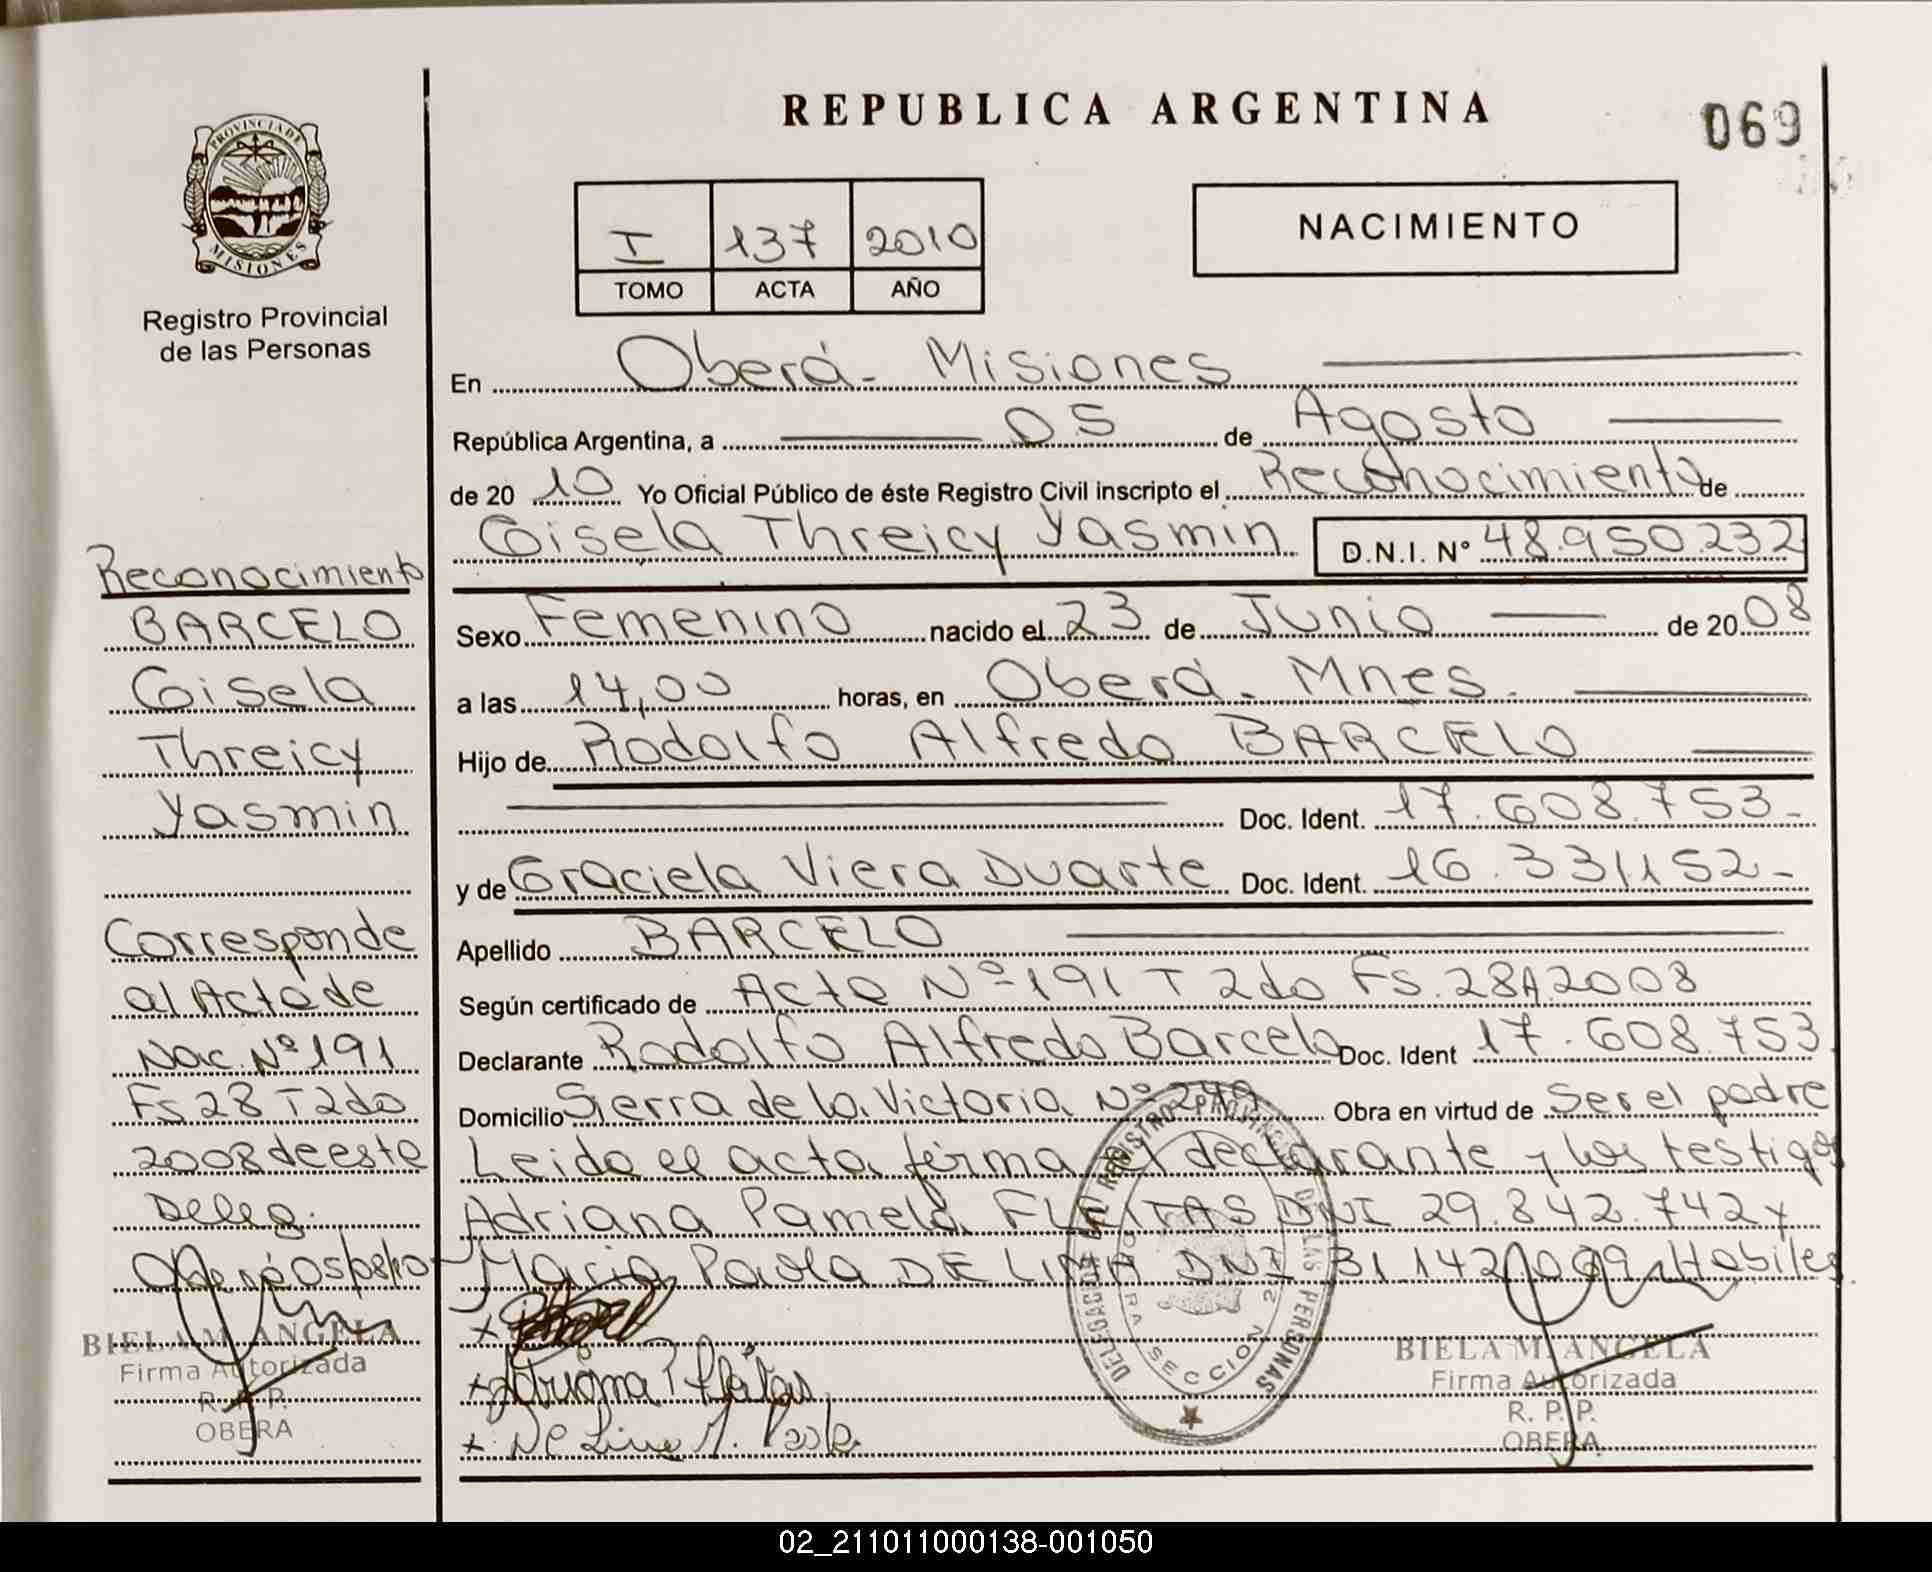 REPUBLICA ARGENTINA
069
PROVINCIA DE
MISIONES
Registro Provincial
de las Personas
I 137 2010
TOMO ACTA AÑO
NACIMIENTO
En Oberá - Misiones
República Argentina, a 05 de Agosto
de 2010 Yo Oficial Público de éste Registro Civil inscripto el Reconocimiento de
Gisela Threicy Yasmin D.N.I. N° 48.950.232
Sexo Femenino nacido el 23 de Junio de 2008
a las 14,00 horas, en Oberá - Mnes.
Hijo de Rodolfo Alfredo BARCELO
Doc. Ident. 17.608.753-
y de Graciela Viera Duarte Doc. Ident. 16.331152-
Apellido BARCELO
Según certificado de Acta Nº 191 T 2do Fs. 28A.2008
Declarante Rodolfo Alfredo Barcelo Doc. Ident 17.608.753
Domicilio Sierra de la Victoria Nº 249 Obra en virtud de Ser el padre
Leido el acta firma el declarante y los testigos
Adriana Pamela FLEITAS DNI 29.842.742 y
Maria Paola DE LIMA DNI 31.142.009 Habiles
Adriana P Fleitas
De Lima M. Paola
DELEGACION REGISTRO PROVINCIAL DE LAS PERSONAS
SECCION 2
BIELA M. ANGELA
Firma Autorizada
R. P. P.
OBERA
Reconocimiento
BARCELO
Gisela
Threicy
Yasmin
Corresponde
al Acta de
Nac. Nº 191
Fs 28 T 2do
2008 de este
Deleg.
Oberá 05/08/10
BIELA M. ANGELA
Firma Autorizada
R. P. P.
OBERA
02_211011000138-001050